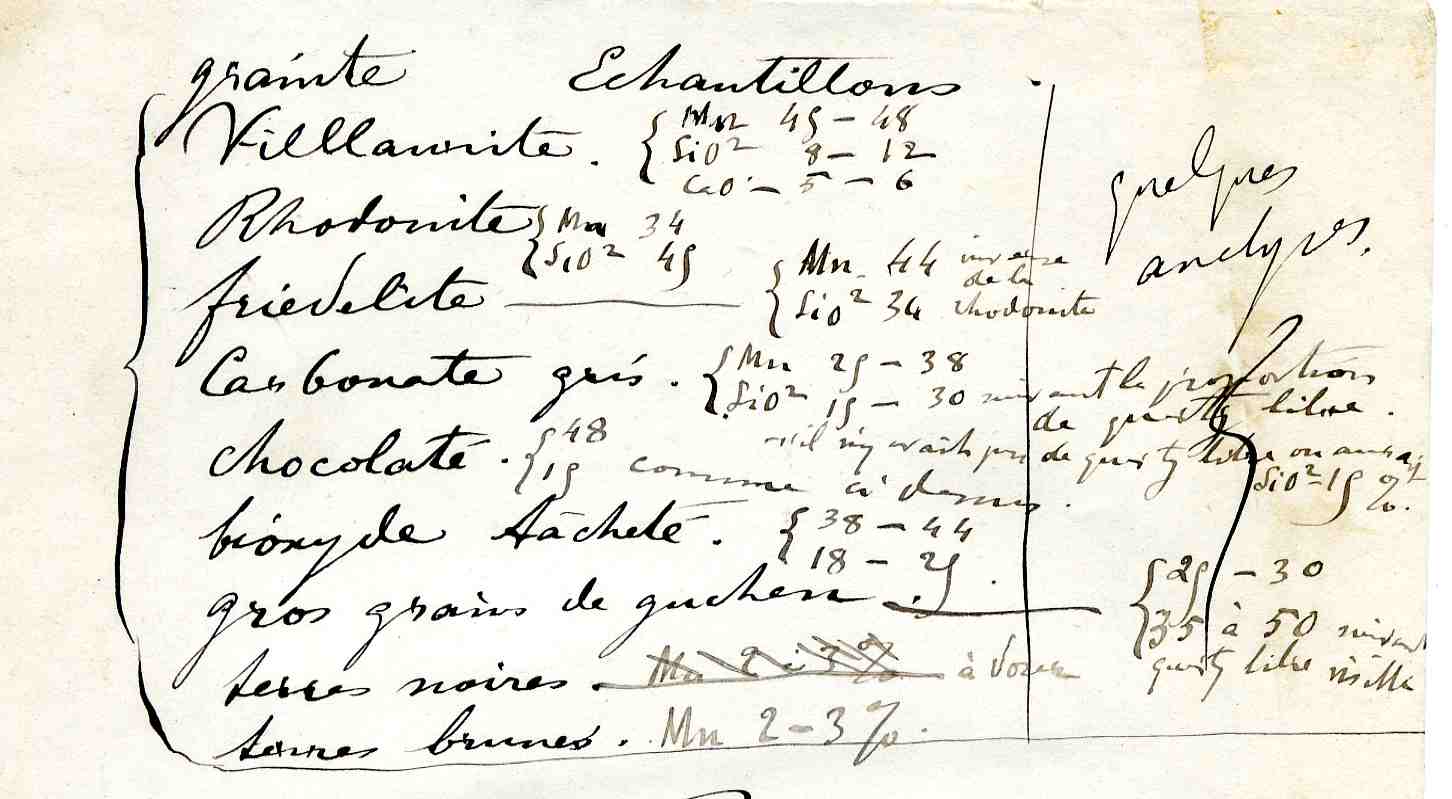 granite Echantillons
Villlaurite. { Mn 45 – 48
SiO² 8 – 12
CaO – 5 – 6
quelques
analyses.
Rhodonite { Mn 34
SiO² 45
friedelite — { Mn 44 inverse
de la
SiO² 34 rhodonite
Carbonate gris. { Mn 25 – 38
SiO² 15 – 30 suivant la proportion
de quartz libre.
s'il n'y avait pas de quartz libre on aurait
SiO² – 15 %.
chocolaté. { 48
15 comme ci dessus.
bioxyde tâcheté. { 38 – 44
18 – 25
gros grains de guchen. — { 25 – 30
35 à 50 suivant
quartz libre visible
terres noires. Mn 2 à 3 % à doser
terres brunes. Mn 2 – 3 %.